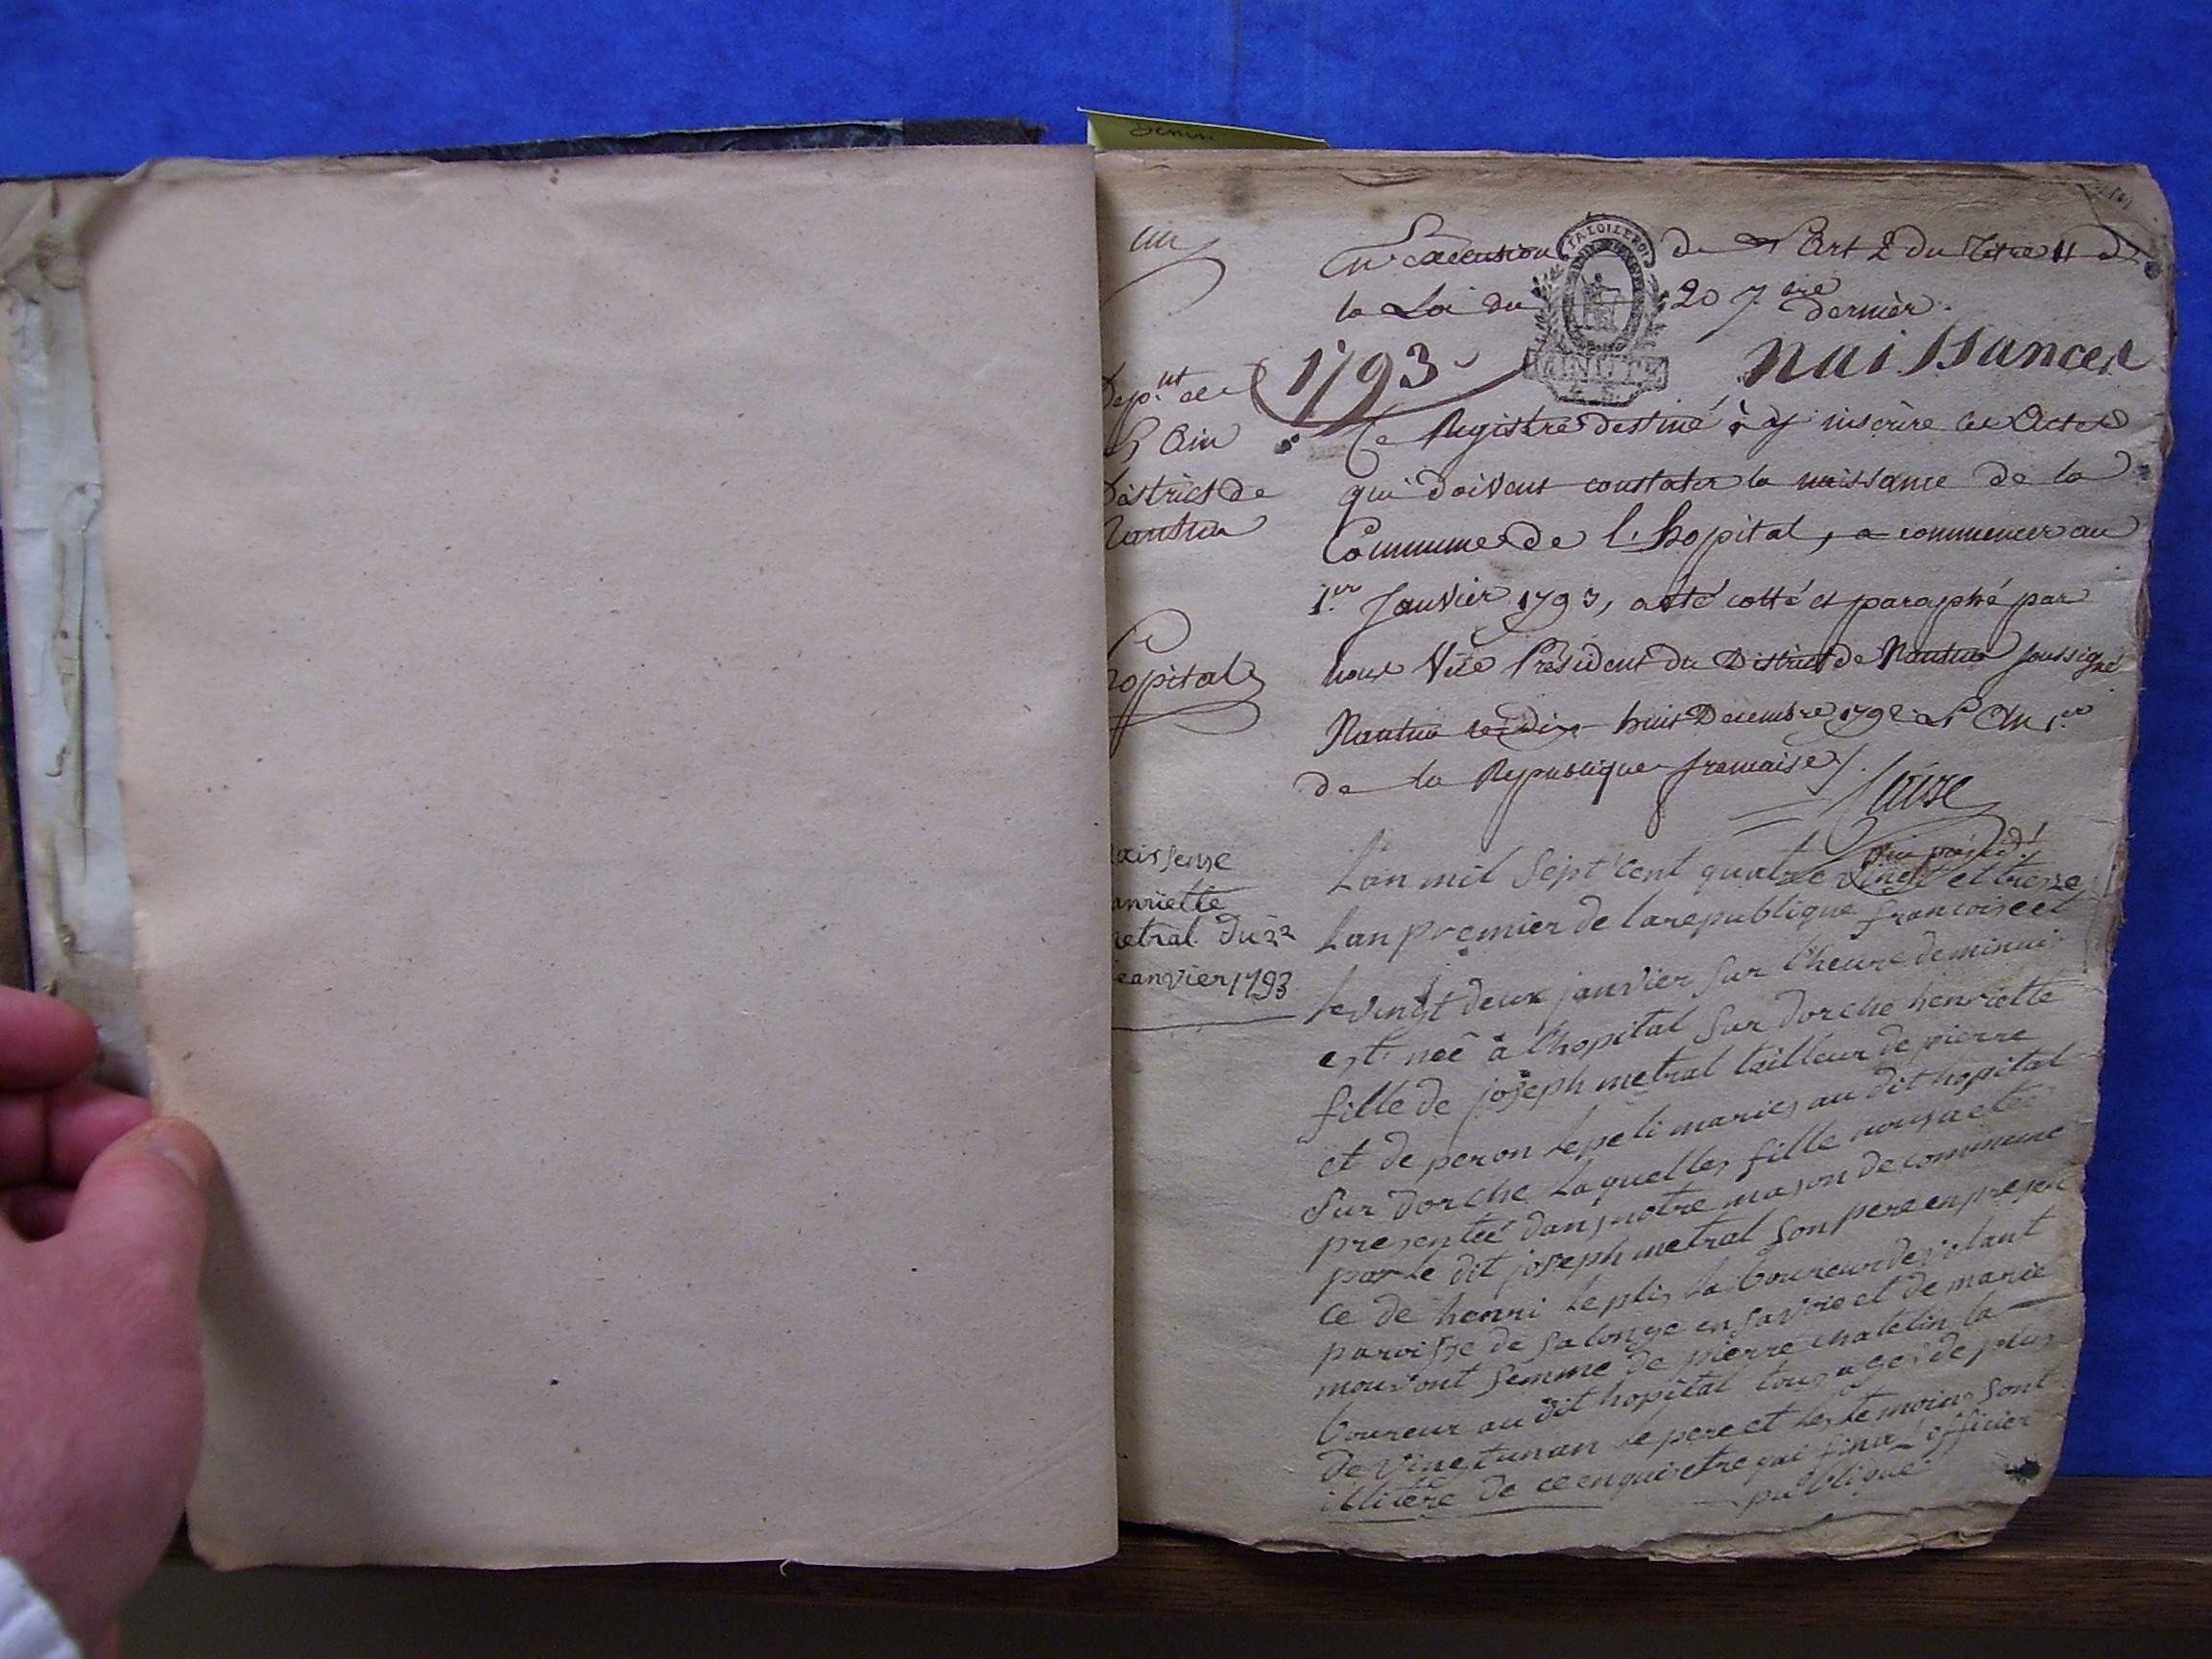 un
En execution de l'Art 2 du Titre II de
la Loi du 20 7bre dernier.
LA LOI LE ROI
MINUTE
1793
naissances
Dep.nt de
L'Ain
District de
Nantua
hopital
Ce Registre destiné à y inscrire les Actes
qui doivent constater la naissance de la
Commune de l'hopital, a commencer au
1.er Janvier 1793, a été cotté et paraphé par
nous Vice Président du District de Nantua soussigné
Nantua le dix huit Decembre 1792 L'An 1.er
de la Republique francaise /.
vice présid.t
naissense
anriette
metral du 22
jeanvier 1793
L'an mil sept cent quatre vingt et treize
L'an premier de la republique francoise et
le vingt deux janvier sur l'heure de minuit
est neê à l'hopital sur dorche henriette
fille de joseph metral tailleur de pierre
et de peron lepeli maries au dit hopital
sur dorche laquelles fille nous a eté
presentée dans notre mason de commune
par le dit joseph metral son pere en presen
ce de henri lepli laboureur de
paroisse de salonge en savoie et de marie
femme de pierre chatelin la
boureur au dit hopital tous ages de plus
de vingt un an le pere et les temoins sont
illitere de ce enquis officier
publique